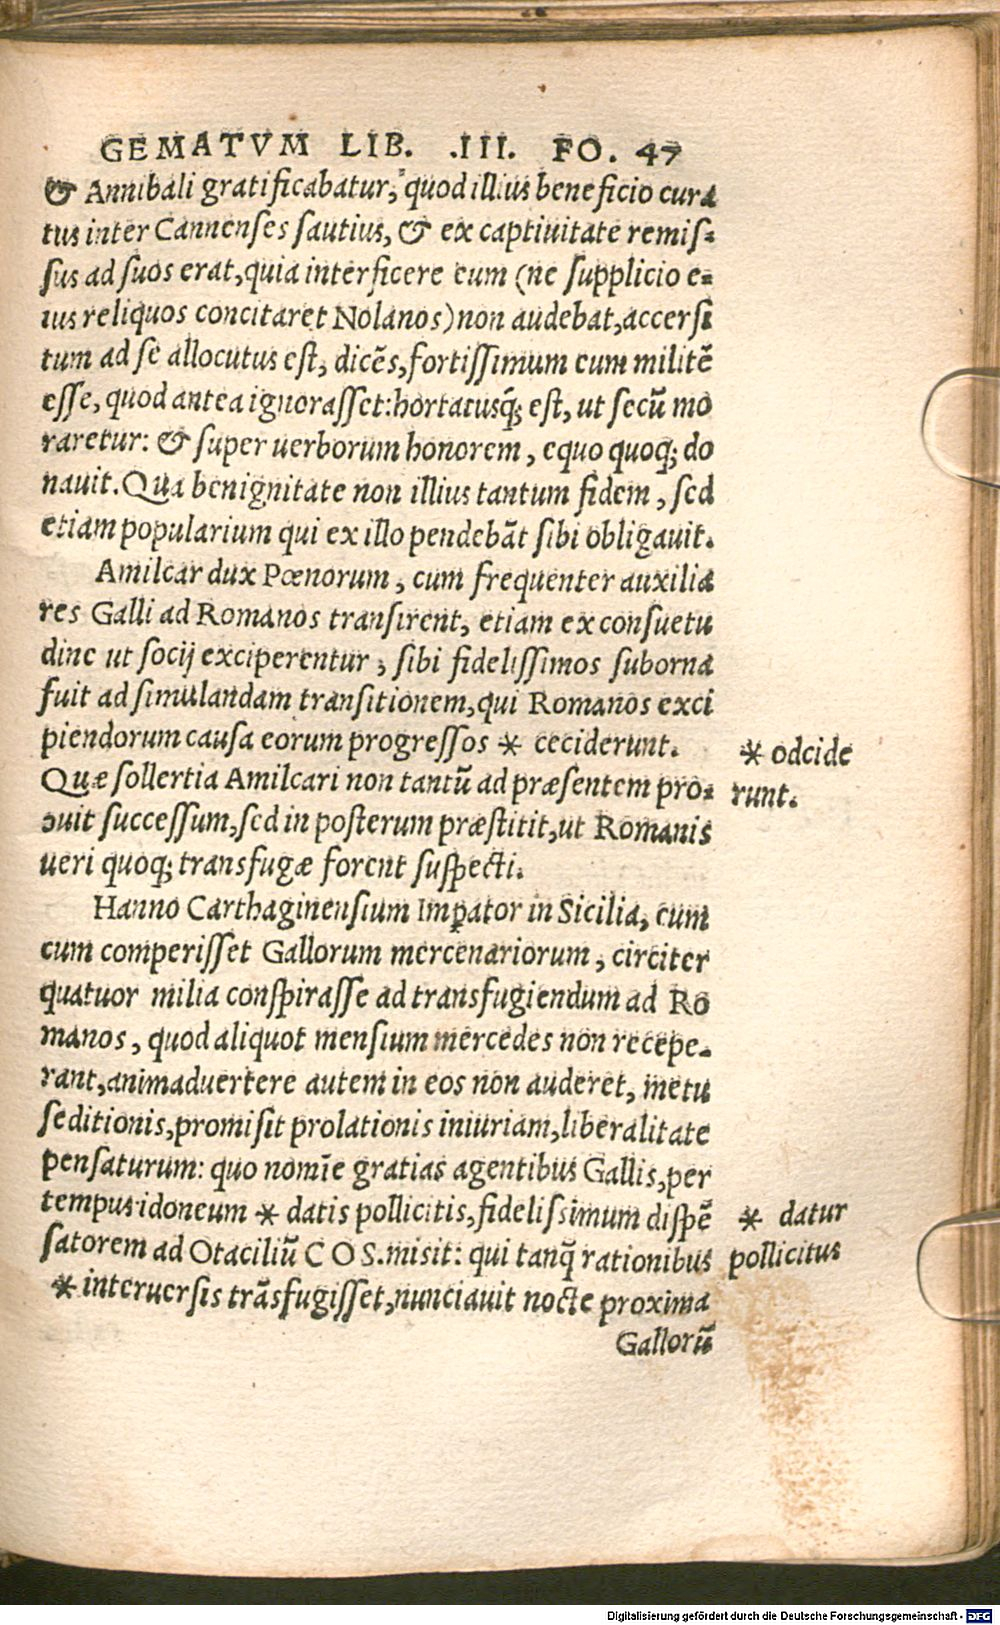 GEMATVM LIB. .III. FO. 47
& Annibali gratificabatur, quod illius beneficio cura
tus inter Cannenses sautius, & ex captiuitate remis-
sus ad suos erat, quia interficere eum (ne supplicio e-
ius reliquos concitaret Nolanos) non audebat, accersi
tum ad se allocutus est, dicēs, fortissimum eum militē
esse, quod antea ignorasset: hortatusq; est, ut secū mo
raretur: & super uerborum honorem, equo quoq; do
nauit. Qua benignitate non illius tantum fidem, sed
etiam popularium qui ex illo pendebāt sibi obligauit.
Amilcar dux Pœnorum, cum frequenter auxilia
res Galli ad Romanos transirent, etiam ex consuetu
dine ut socij exciperentur, sibi fidelissimos suborna
fuit ad simulandam transitionem, qui Romanos exci
piendorum causa eorum progressos * ceciderunt.
* odcide
runt.
Quæ sollertia Amilcari non tantū ad præsentem pro-
ouit successum, sed in posterum præstitit, ut Romanis
ueri quoq; transfugæ forent suspecti.
Hanno Carthaginensium Imꝑator in Sicilia, cum
cum comperisset Gallorum mercenariorum, circiter
quatuor milia conspirasse ad transfugiendum ad Ro
manos, quod aliquot mensium mercedes non recepe-
rant, animaduertere autem in eos non auderet, metu
seditionis, promisit prolationis iniuriam, liberalitate
pensaturum: quo nomīe gratias agentibus Gallis, per
tempus idoneum * datis pollicitis, fidelissimum dispē
* datur
pollicitus
satorem ad Otaciliū COS. misit: qui tanq̄ rationibus
* interuersis trāsfugisset, nunciauit nocte proxima
Gallorū
Digitalisierung gefördert durch die Deutsche Forschungsgemeinschaft - DFG